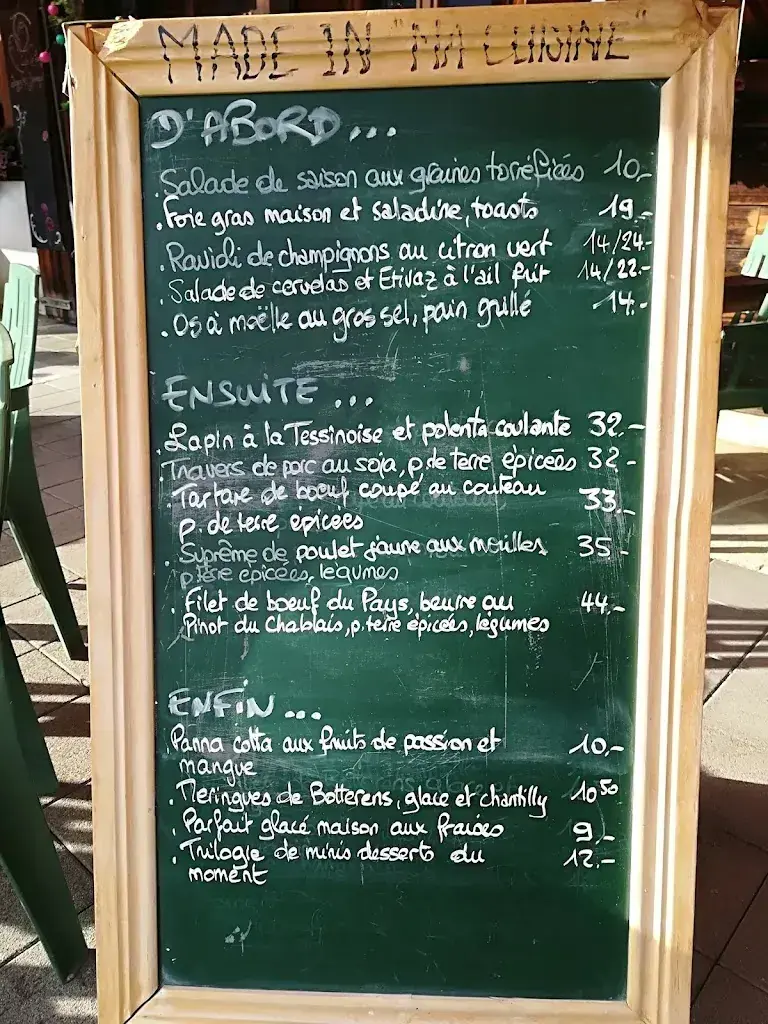 MADE IN "MA CUISINE"
D'ABORD...
. Salade de saison aux graines torréfiées 10.-
. Foie gras maison et saladine, toasts 19.-
. Ravioli de champignons au citron vert 14/24.-
. Salade de cervelas et Etivaz à l'ail frit 14/22.-
. Os à moëlle au gros sel, pain grillé 14.-
ENSUITE...
. Lapin à la Tessinoise et polenta coulante 32.-
. Travers de porc au soja, p. de terre épicées 32-
. Tartare de boeuf coupé au couteau 33.-
p. de terre épicées
. Suprême de poulet jaune aux morilles 35-
p. terre épicées, legumes
. Filet de boeuf du Pays, beurre au 44.-
Pinot du Chablais, p. terre épicées, legumes
ENFIN...
. Panna cotta aux fruits de passion et 10.-
mangue
. Meringues de Botterens, glace et chantilly 10 50
. Parfait glacé maison aux fraises 9.-
. Trilogie de minis desserts du 12.-
moment